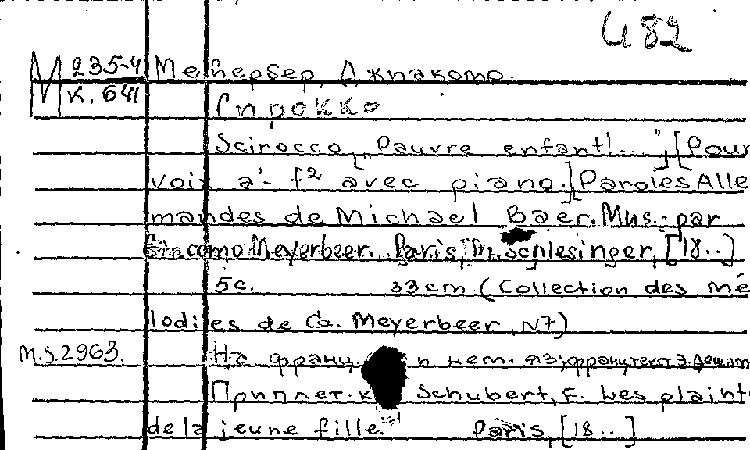 482
М 235-4 Мейербер, Джиакомо.
К. 641 Сирокко
Scirocco ["Pauvre enfant!..."] [Pour
voix a'- f² avec piano.] Paroles Alle
mandes de Michael Baer. Mus. par
Giacomo Meyerbeer. Paris, M. Schlesinger, [18..]
5c. 33cm (Collection des Mé
lodies de G. Meyerbeer, N7)
M.S.2963. На франц. и нем. яз; франц текст Э. Дешам
Приплет. к Schubert, F. Les plaint
de la jeune fille. Paris, [18..]